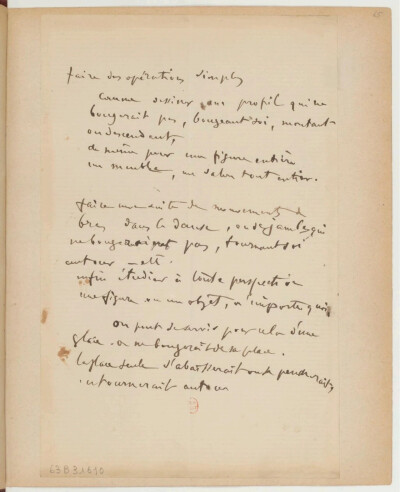 faire des opérations simples
comme dessiner un profil qui ne
bougerait pas, bougeant soi, montant
ou descendant,
de même pour une figure entière
un meuble, un salon tout entier.
faire une suite de mouvements de
bras dans la danse, ou de jambes qui
ne bougeraient pas, tournant soi
autour — etc.
enfin étudier à toute perspective
une figure ou un objet, n'importe quoi
on peut se servir pour cela d'une
glace. on ne bougerait de sa place.
la glace seule s'abaisserait ou se pencherait,
tournerait autour
63B31610